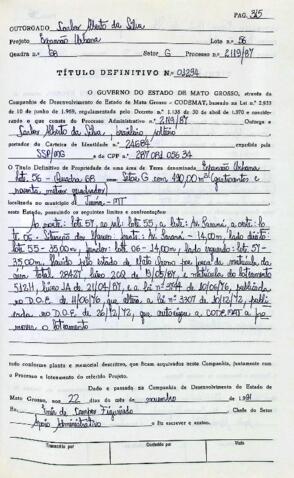 PAG. 315
OUTORGADO Carlos Alberto da Silva
Projeto Expansão Urbana Lote n.º 56
Quadra n.º 68 Setor G Processo n.º 2119/87
TÍTULO DEFINITIVO N.º 01294
O GOVERNO DO ESTADO DE MATO GROSSO, através da
Companhia de Desenvolvimento do Estado de Mato Grosso - CODEMAT, baseado na Lei n.º 2.933
de 10 de junho de 1969, regulamentada pelo Decreto n.º 1.138 de 30 de abril de 1970 e considerando
o que consta do Processo Administrativo n.º 2119/87 Outorga a
Carlos Alberto da Silva, brasileiro, solteiro
portador da Carteira de Identidade n.º 24684
SSP/MG e do CPF n.º 287 081 036 34
O Título Definitivo de Propriedade de uma área de Terra denominada Expansão Urbana
Lote 56 - Quadra 68 - Setor G com 490,00 m² (quatrocentos e
noventa, metros quadrados)
localizada no município de Juína - MT
neste Estado, possuindo os seguintes limites e confrontações:
Ao norte: lote 57, ao sul: lote 55, a leste: Av. Paraná, a oeste: lo
te 06 - frente: Av. Paraná - 14,00m lado direito:
lote 55 - 35,00m, fundos: lote 06 - 14,00m, lado esquerdo: lote 57 -
35,00m.
no D.O.E. de 11/06/76, que altera a lei n.º 3307 de 18/12/72, publi
cada no D.O.E. de 26/12/72, que autoriza a CODEMAT a pro
mover o loteamento
tudo conforme planta e memorial descritivo, que ficam arquivados nesta Companhia, juntamente com
o Processo e loteamento do referido Projeto.
Dado e passado na Companhia de Desenvolvimento do Estado de
Mato Grosso, aos 22 dias do mês de novembro de 1991
Eu Inês de Campos Figueiredo Chefe do Setor
Apoio Administrativo o fiz escrever e assino.
Transcrito por Conferido por Visto